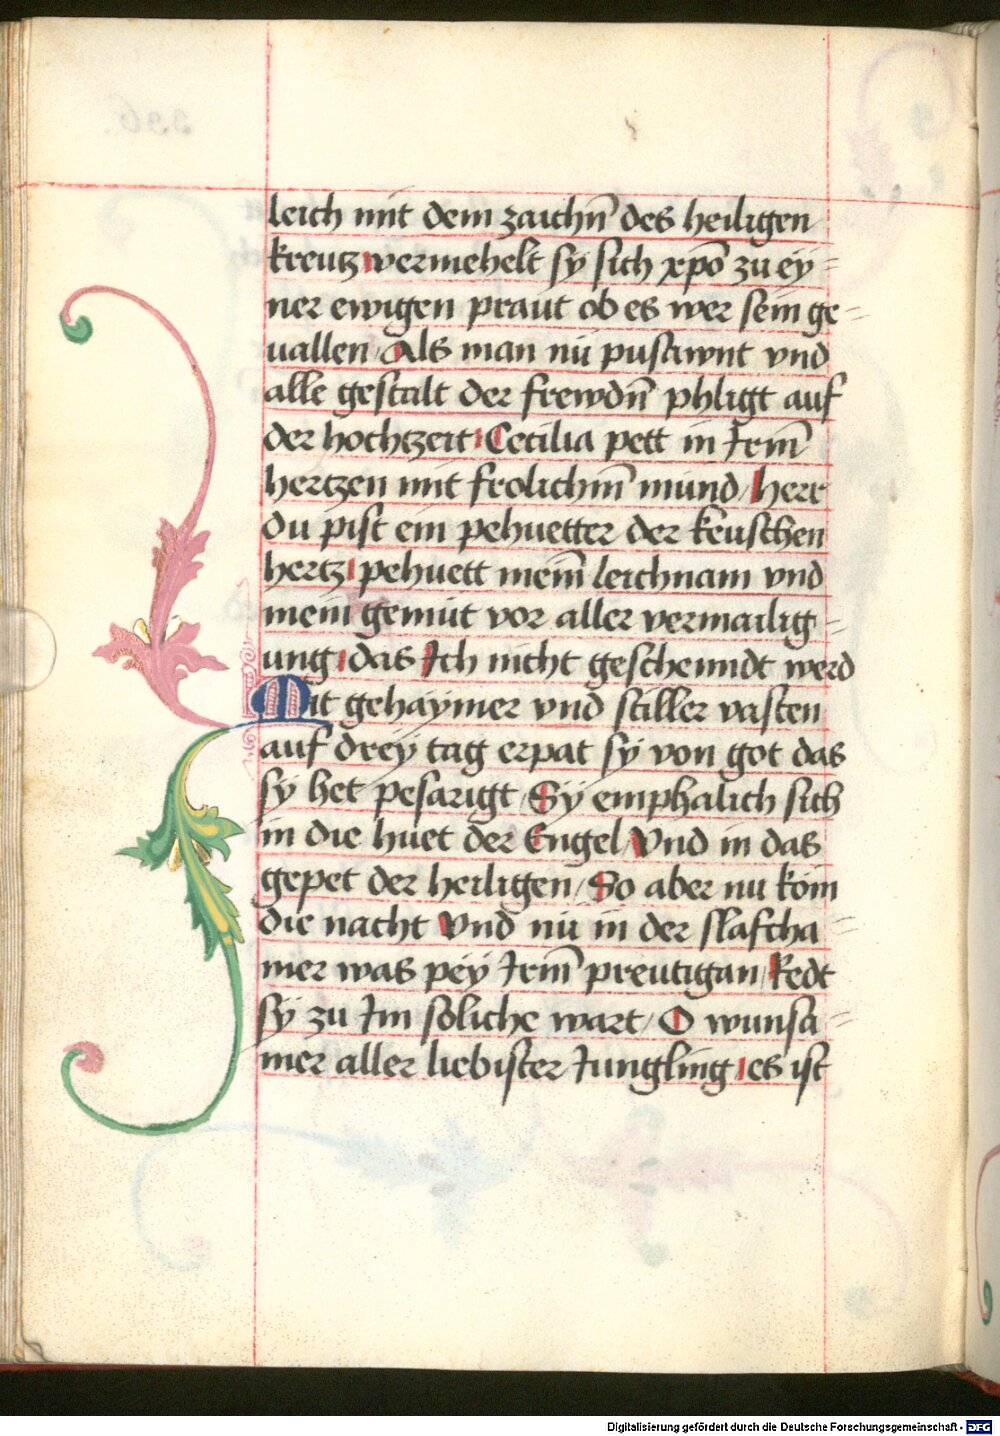 leich mit dem zaichn̄ des heiligen
kreutz vermehelt sy sich xp̄o zu ey=
ner ewigen praut ob es wer sein ge=
uallen / Als man nu pusawnt vnd
alle gestalt der frewdn̄ phligt auf
der hochtzeit Cecilia pett in Irm̄
hertzen mit frolichm̄ mund / herr
du pist ein pehuetter der keuschen
hertz pehuett mein̄ leichnam vnd
mein gemüt vor aller vermailig=
ung das Ich nicht geschenndt werd
Mit gehaymer vnd stiller vasten
auf drey tag erpat sy von got das
sy het pesarigt / Sy emphalich sich
in die huet der Engel / Vnd in das
gepet der heiligen / So aber nu kom
die nacht Vnd nu in der slafcha=
mer was pey Irm̄ preutigan / Redt
sy zu Im soliche wart / O wunsa=
mer aller liebister Jungling es ist
Digitalisierung gefördert durch die Deutsche Forschungsgemeinschaft - DFG